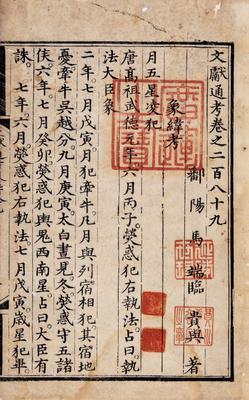 文獻通考卷之二百八十九
鄱陽馬端臨貴與著
象緯考
月五星凌犯
唐高祖武德元年六月丙子熒惑犯右執法占曰執
法大臣象
二年七月戊寅月犯牽牛凡月與列宿相犯其宿地
憂牽牛吳越分九月庚寅太白晝見冬熒惑守五諸
侯六年七月癸卯熒惑犯輿鬼西南星占曰大臣有
誅七年六月熒惑犯右執法七月戊寅歲星犯畢